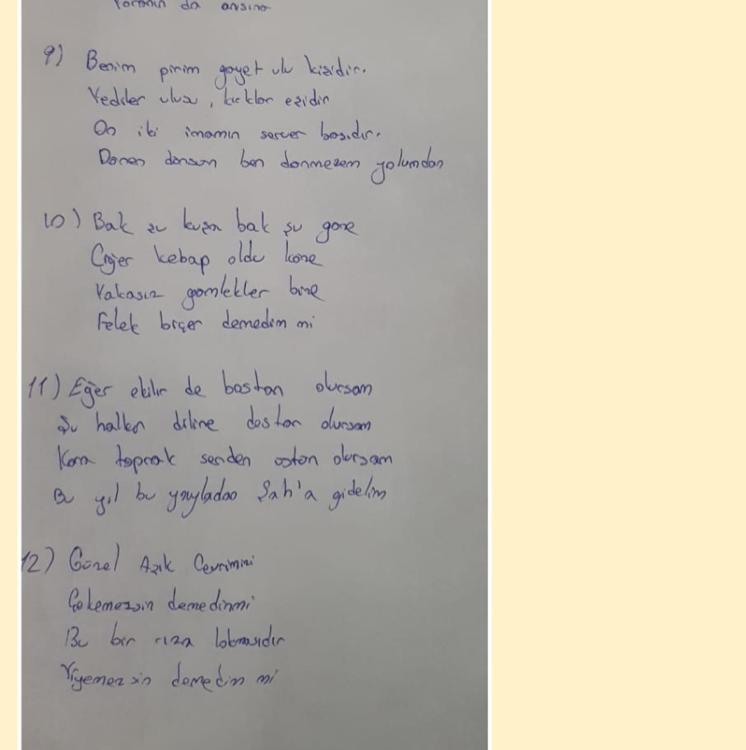 da ansına
9) Benim pirim gayet ulu kişidir.
Yediler ulusu, kırklar eşidir
On iki imamın server başıdır.
Dönen dönsün ben dönmezem yolumdan
10) Bak şu kuşa bak şu gone
Ciğer kebap oldu kane
Yakasız gömlekler bize
Felek biçer demedim mi
11) Eğer ekilir de bostan olursam
Şu halkın diline destan olursam
Kara toprak senden üstün olursam
Bu yıl bu yayladan Şah'a gidelim
12) Güzel Aşık Cevrimizi
Çekemezsin demedinmi
Bu bir rıza lokmasıdır
Yiyemezsin demedim mi